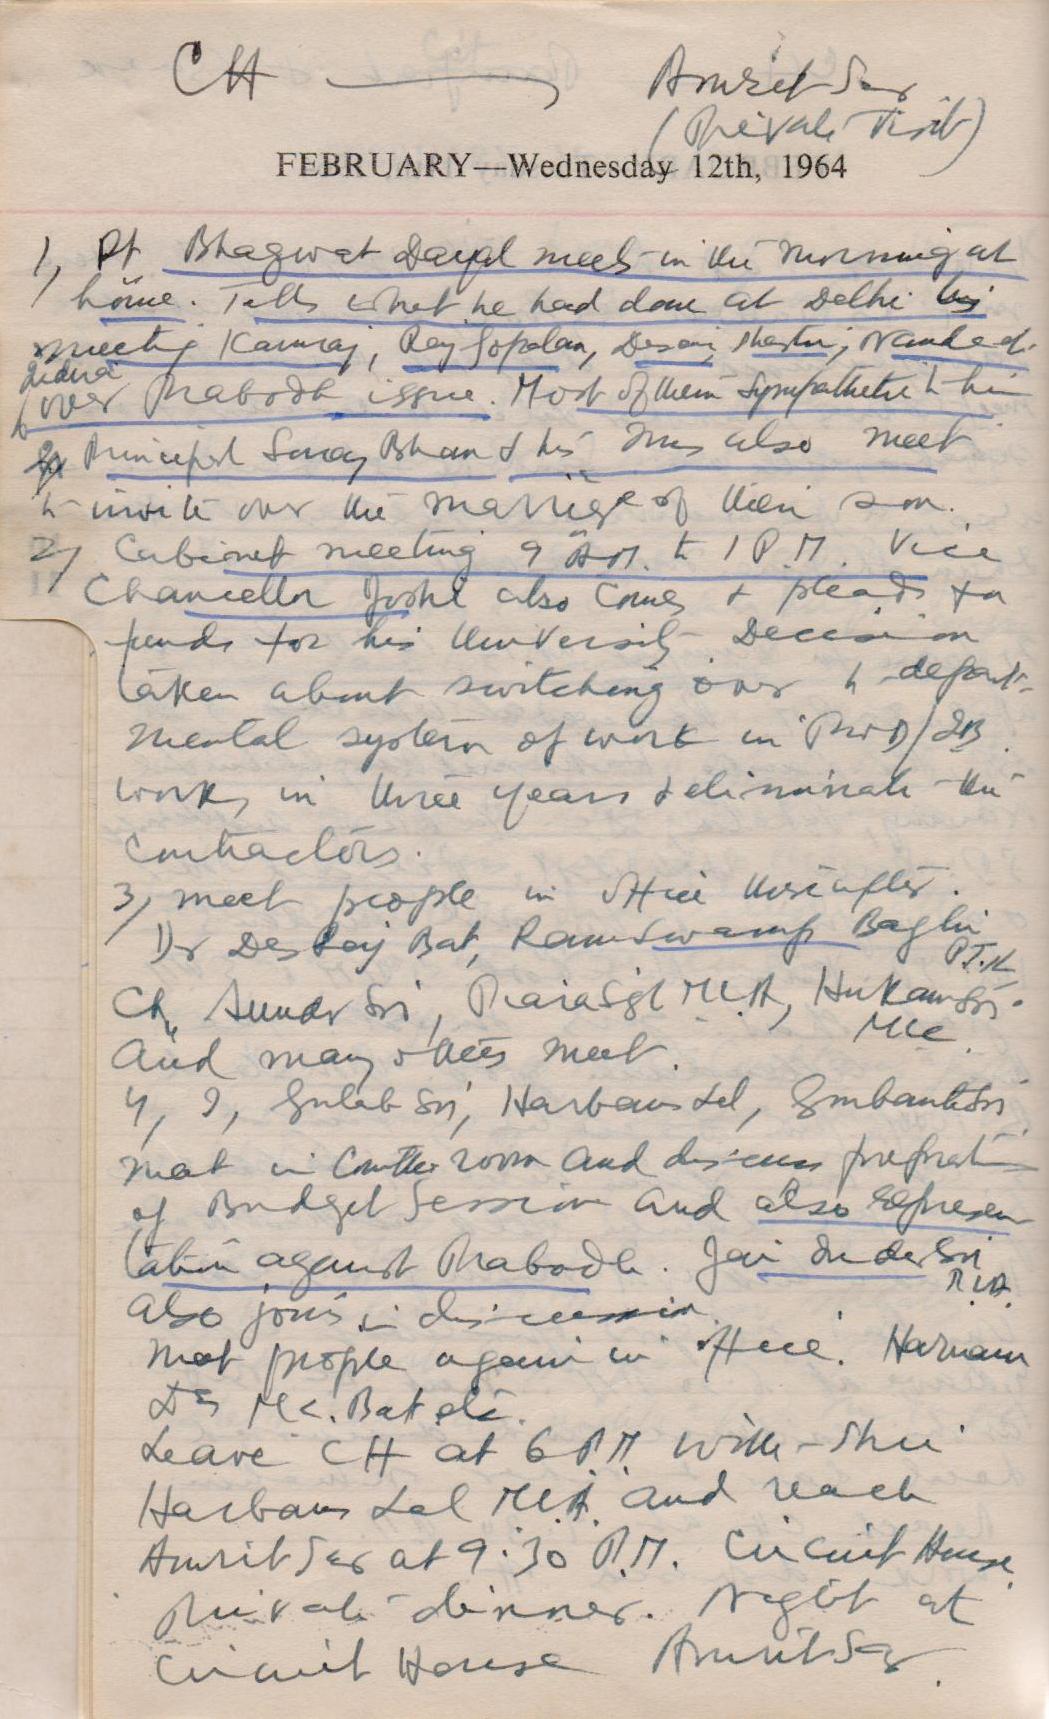 CH — Amrit Sar
(Private Visit)
FEBRUARY—Wednesday 12th, 1964
1, Pt Bhagwat Dayal meets in the morning at
home. Tells what he had done at Delhi by
meeting Kamraj, Raj Gopalan, Desai, Shastri, Nanda &
Indira
over Prabodh issue. Most of them sympathetic to him
Principal Suraj Bhan & his Mrs also meet
to invite over the marriage of their son.
2, Cabinet meeting 9 A.M. to 1 P.M. Vice
Chancellor Joshi also comes & pleads for
funds for his University. Decision
taken about switching over to depart-
mental system of work in PWD/IB
works in three years & eliminate the
contractors.
3, meet people in office thereafter.
Dr Des Raj Bat, Ram Swarup Baghi
Ch. Sunder Sri, Piara Sgl MLA, Hukam Sri
MLC
and many others meet.
4, I, Gulab Sri, Harbans Lal, Gurbanta Sri
meet in Comttee room and discuss preparation
of Budget Session and also represen
tation against Prabodh. Jai Inder Sri
M.L.A.
also joins in discussion.
Meet people again in office. Harnam
Ds MLC. Bat etc.
Leave CH at 6 P.M. with Shri
Harbans Lal M.L.A. and reach
Amrit Sar at 9.30 P.M. Circuit House
Private dinner. Night at
Circuit House Amrit Sar.